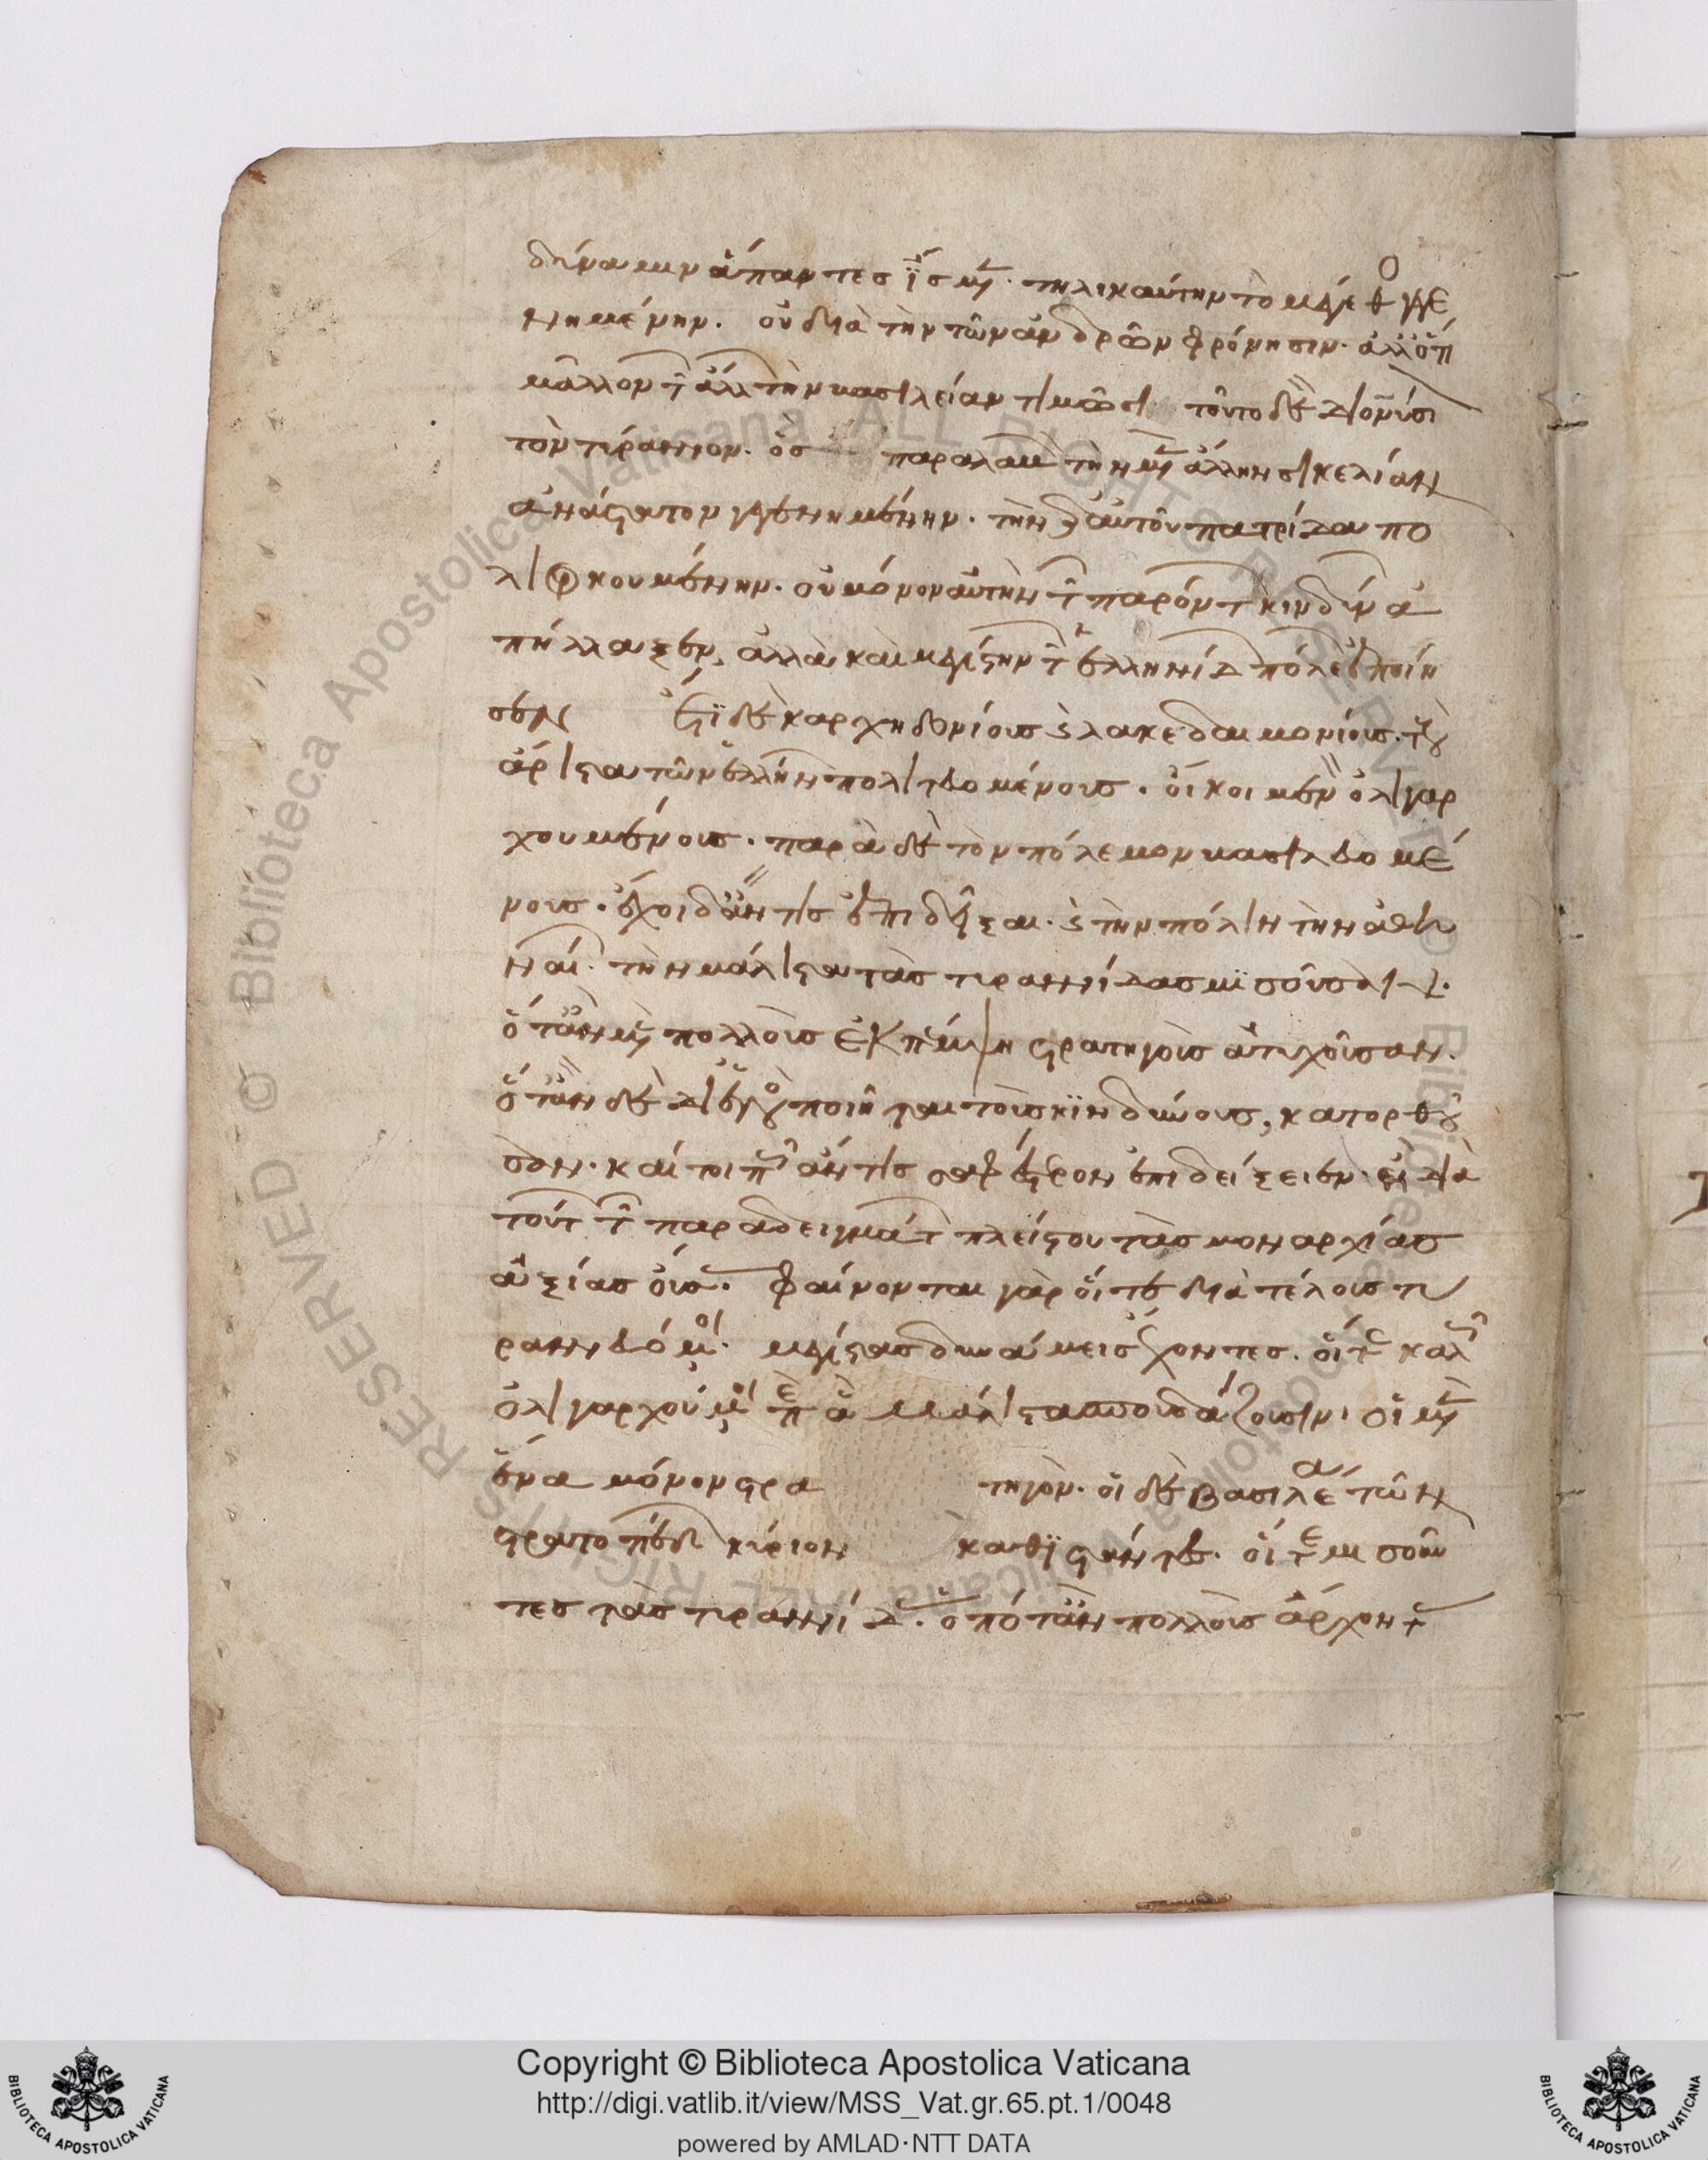 δύναμιν ἅπαντες ἴσμεν· τηλικαύτην τὸ μέγεθος γεγε
νημένην. οὐ διὰ τὴν τῶν ἀνδρῶν φρόνησιν· ἀλλ' ὅτι
μᾶλλον τῶν ἄλλων τὴν βασιλείαν τιμῶσι. τοῦτο δὲ διονύσιον
τὸν τύραννον. ὃς παραλαβὼν τὴν μὲν ἄλλην σικελίαν
ἀνάστατον γεγενημένην. τὴν δ' αὐτοῦ πατρίδα πο
λιορκουμένην. οὐ μόνον αὐτὴν τῶν παρόντων κινδύνων ἀ
πήλλαξεν, ἀλλὰ καὶ μεγίστην τῶν ἑλληνίδων πόλεων ἐποίη
σεν ἔτι δὲ καρχηδονίους καὶ λακεδαιμονίους. τοὺς
ἄριστα τῶν ἑλλήνων πολιτευομένους. οἴκοι μὲν ὀλιγαρ
χουμένους. παρὰ δὲ τὸν πόλεμον βασιλευομέ
νους. ἔχοι δ' ἄν τις ἐπιδεῖξαι. καὶ τὴν πόλιν τὴν ἀθη
ναίων. τὴν μάλιστα τὰς τυραννίδας μισοῦσαν.
ὅταν μὲν πολλοὺς ἐκπέμψη στρατηγοὺς ἀτυχοῦσαν.
ὅταν δὲ δι' ἑνὸς ποιῆται τοὺς κινδύνους, κατορθοῦ
σαν. καίτοι πῶς ἄν τις σαφέστερον ἐπιδείξειεν· εἰ διὰ
τούτων τῶν παραδειγμάτων πλείστου τὰς μοναρχίας
ἀξίας οὔσας. φαίνονται γὰρ οἵ τε διὰ τέλους τυ
ραννευόμενοι. μεγίστας δυνάμεις ἔχοντες. οἵ τε καλῶς
ὀλιγαρχούμενοι περὶ ἃ μάλιστα σπουδάζουσιν, οἱ μὲν
ἕνα μόνον στρα τηγὸν. οἱ δὲ βασιλέα τῶν
στρατοπέδων κύριον καθιστάντες. οἵ τε μισοῦν
τες τὰς τυραννίδας. ὁπόταν πολλοὺς ἄρχοντας
Copyright © Biblioteca Apostolica Vaticana
http://digi.vatlib.it/view/MSS_Vat.gr.65.pt.1/0048
powered by AMLAD·NTT DATA